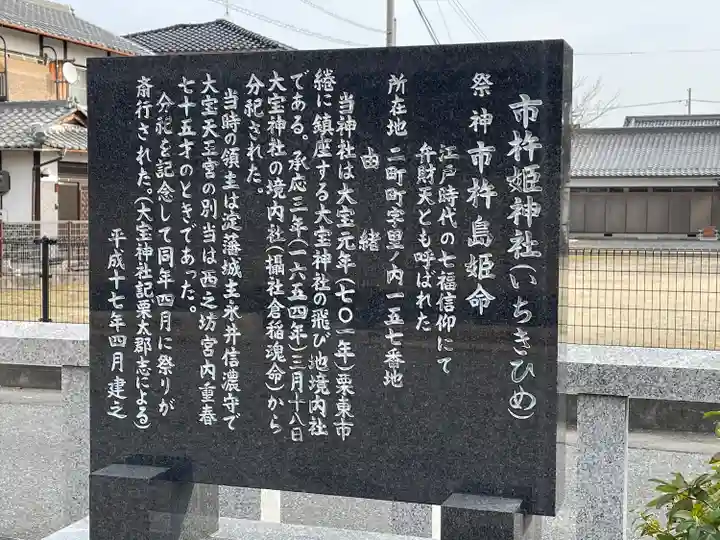 市杵姫神社(いちきひめ)
祭神 市杵島姫命
江戸時代の七福信仰にて
弁財天とも呼ばれた
所在地 二町町字望ノ内一五七番地
由緒
当神社は大宝元年(七〇一年)栗東市
綣に鎮座する大宝神社の飛び地境内社
である。承応三年(一六五四年)三月十八日
大宝神社の境内社(攝社倉稲魂命)から
分祀された。
当時の領主は淀藩城主永井信濃守で
大宝天王宮の別当は西之坊宮内重春
七十五才のときであった。
分祀を記念して同年四月に祭りが
斎行された。(大宝神社記栗太郡志による)
平成十七年四月建之